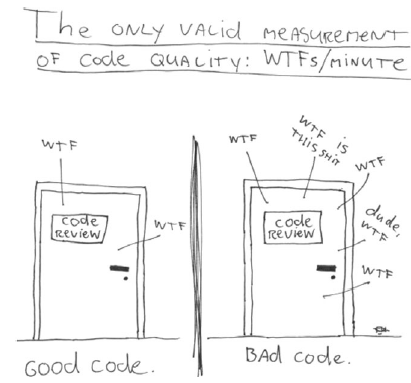 The only valid measurement
of code quality: WTFs/minute
WTF
code
Review
WTF
Good code.
WTF
WTF is
this shit
WTF
code
Review
dude,
WTF
WTF
Bad code.